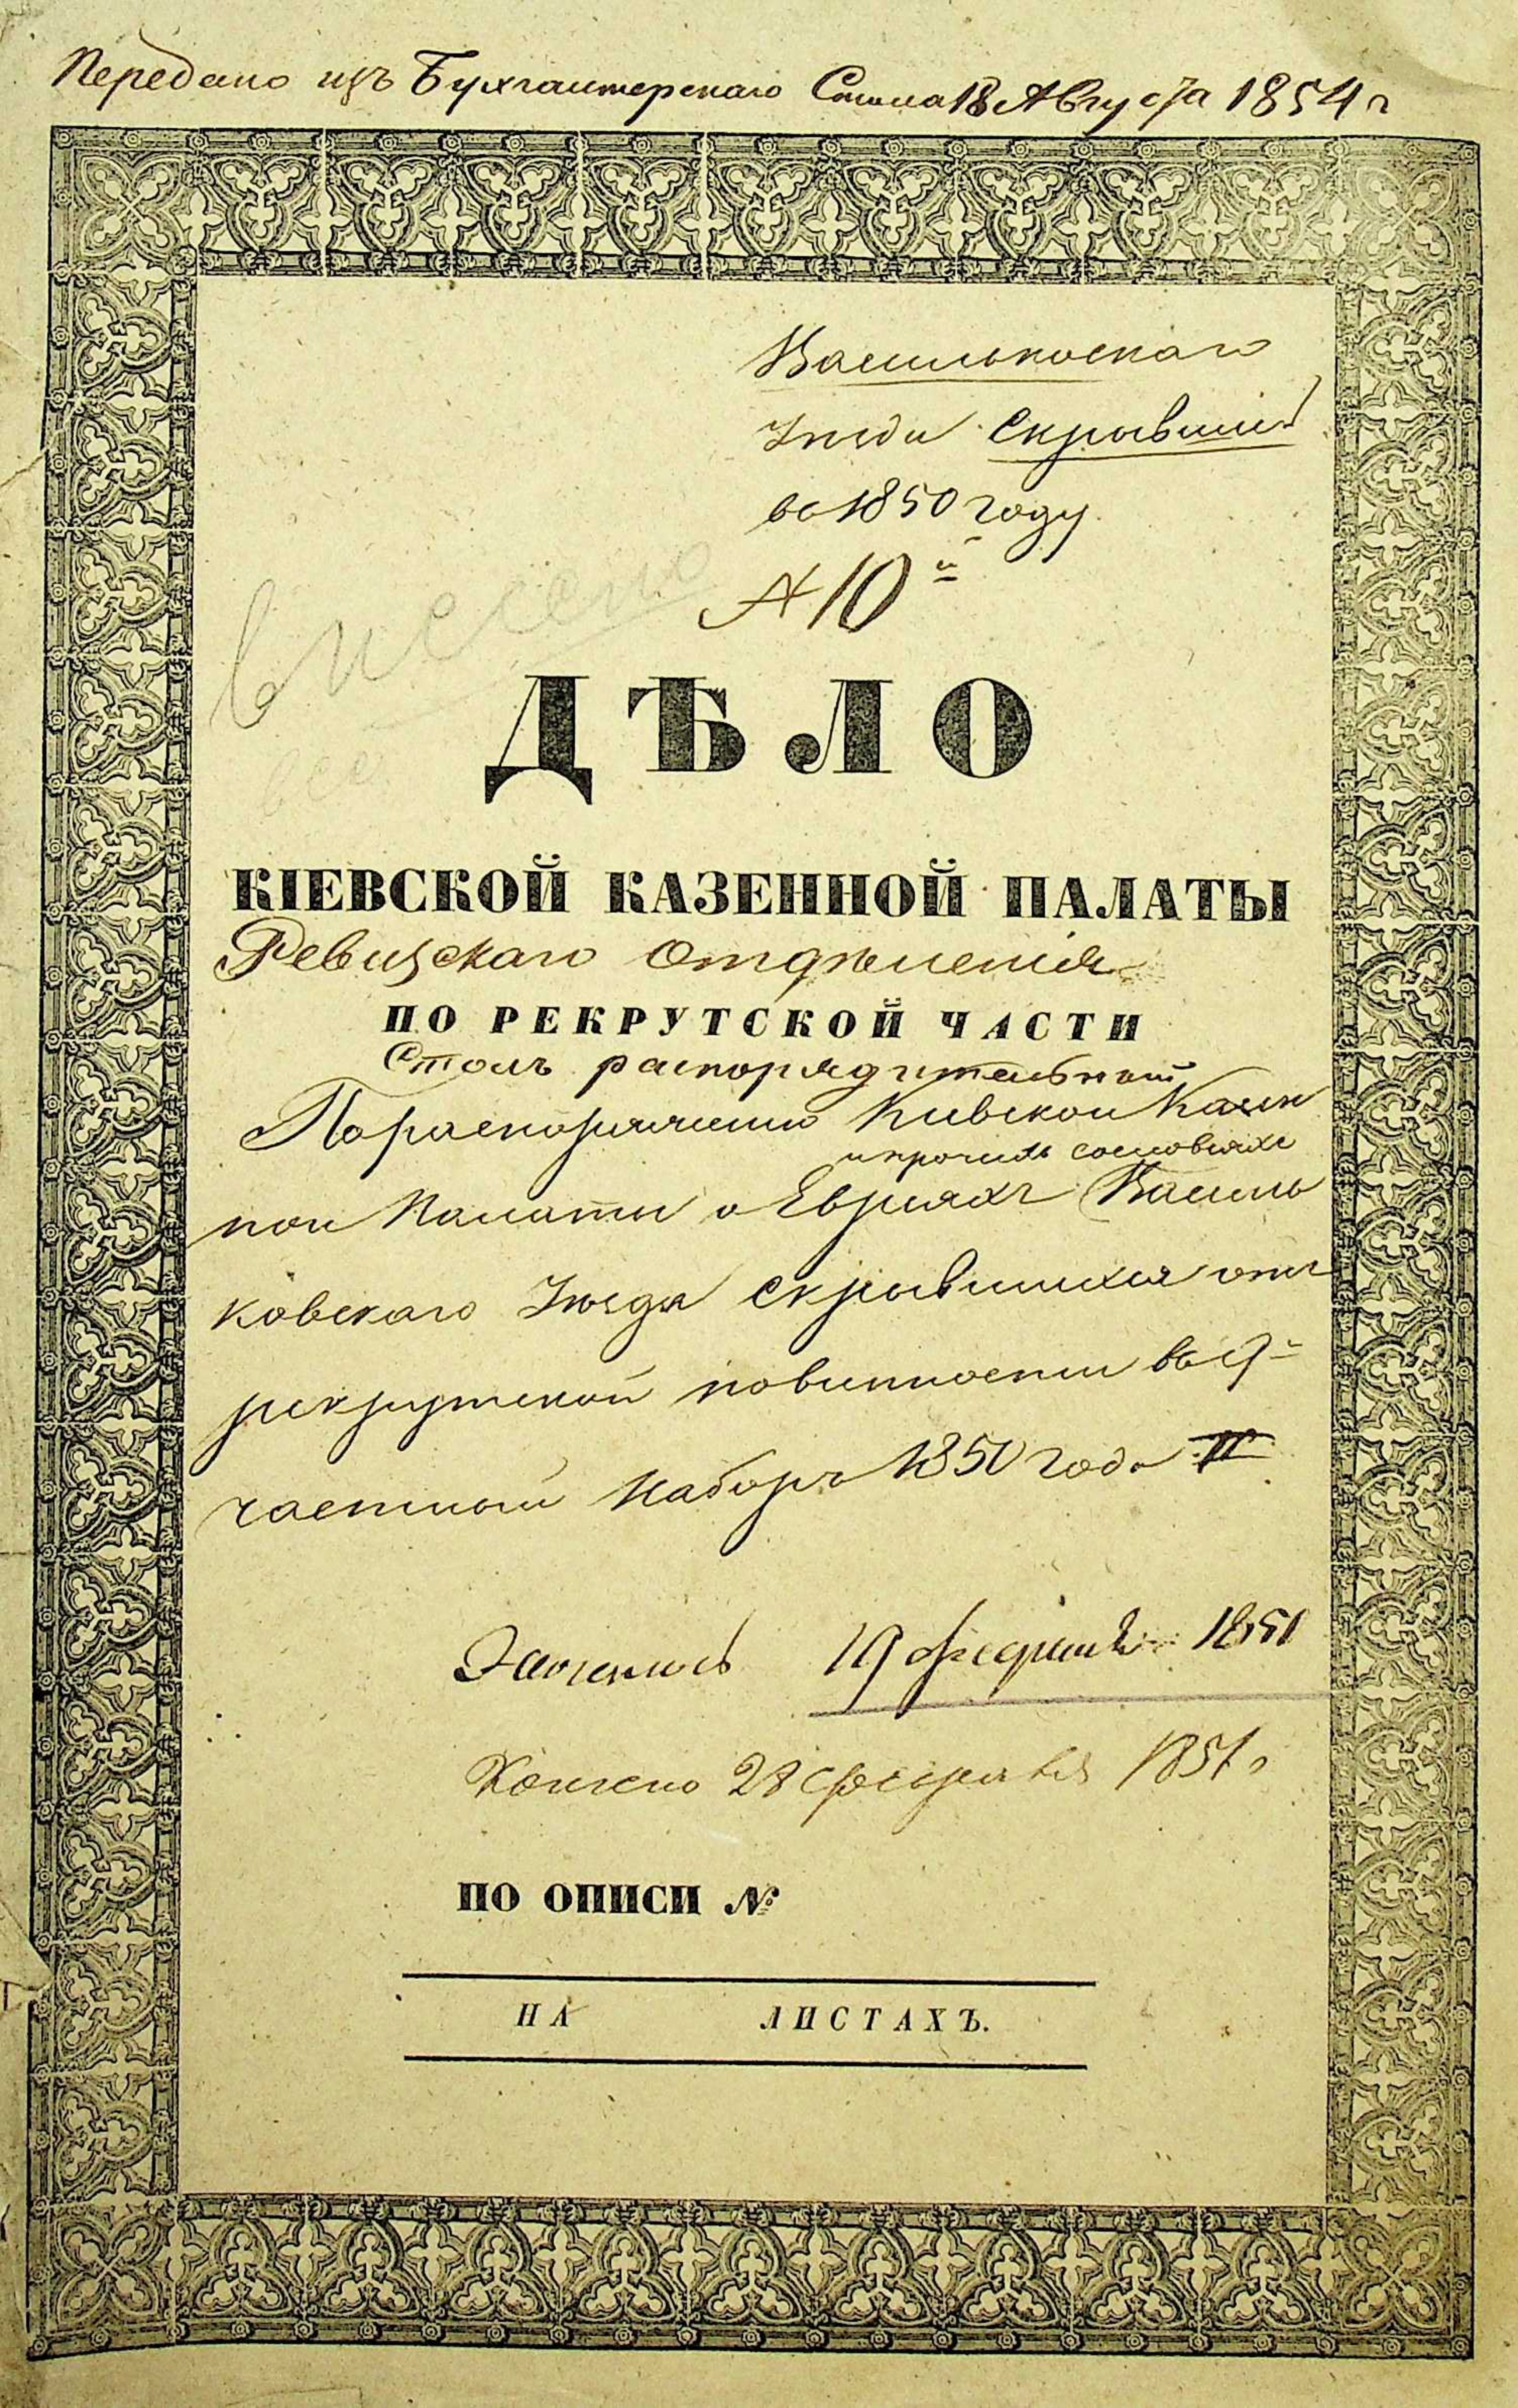 Передано изъ Бухгалтерскаго Стола 18 Августа 1854 г
Васильковскаго
Уезда Скрывшихъ
во 1850 году
№ 10й
внесено
все
ДѢЛО
КІЕВСКОЙ КАЗЕННОЙ ПАЛАТЫ
Ревизскаго Отдѣленія
ПО РЕКРУТСКОЙ ЧАСТИ
Столъ распорядительный
По распоряженію Кіевской Казен
и прочихъ сословіяхъ
ной Палаты о Евреяхъ Василь
ковскаго Уѣзда скрывшихся отъ
рекрутской повинности во 9й
частный Наборъ 1850 года
Началось 19 февраля 1851
Кончено 28 февраля 1851 г
ПО ОПИСИ №
НА ЛИСТАХЪ.